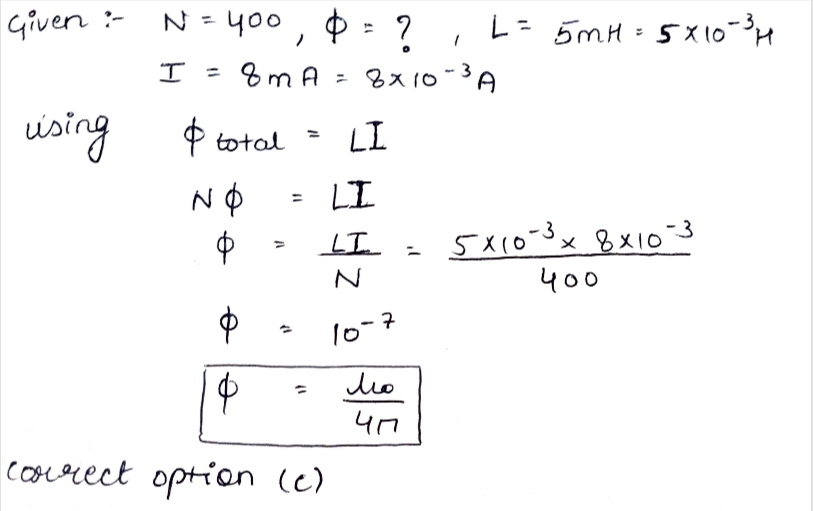 Given :- N = 400, ϕ = ?, L = 5mH = 5×10⁻³H
I = 8mA = 8×10⁻³A
using ϕ total = LI
Nϕ = LI
ϕ = LI/N = 5×10⁻³ × 8×10⁻³/400
ϕ = 10⁻⁷
ϕ = μ₀/4π
correct option (c)